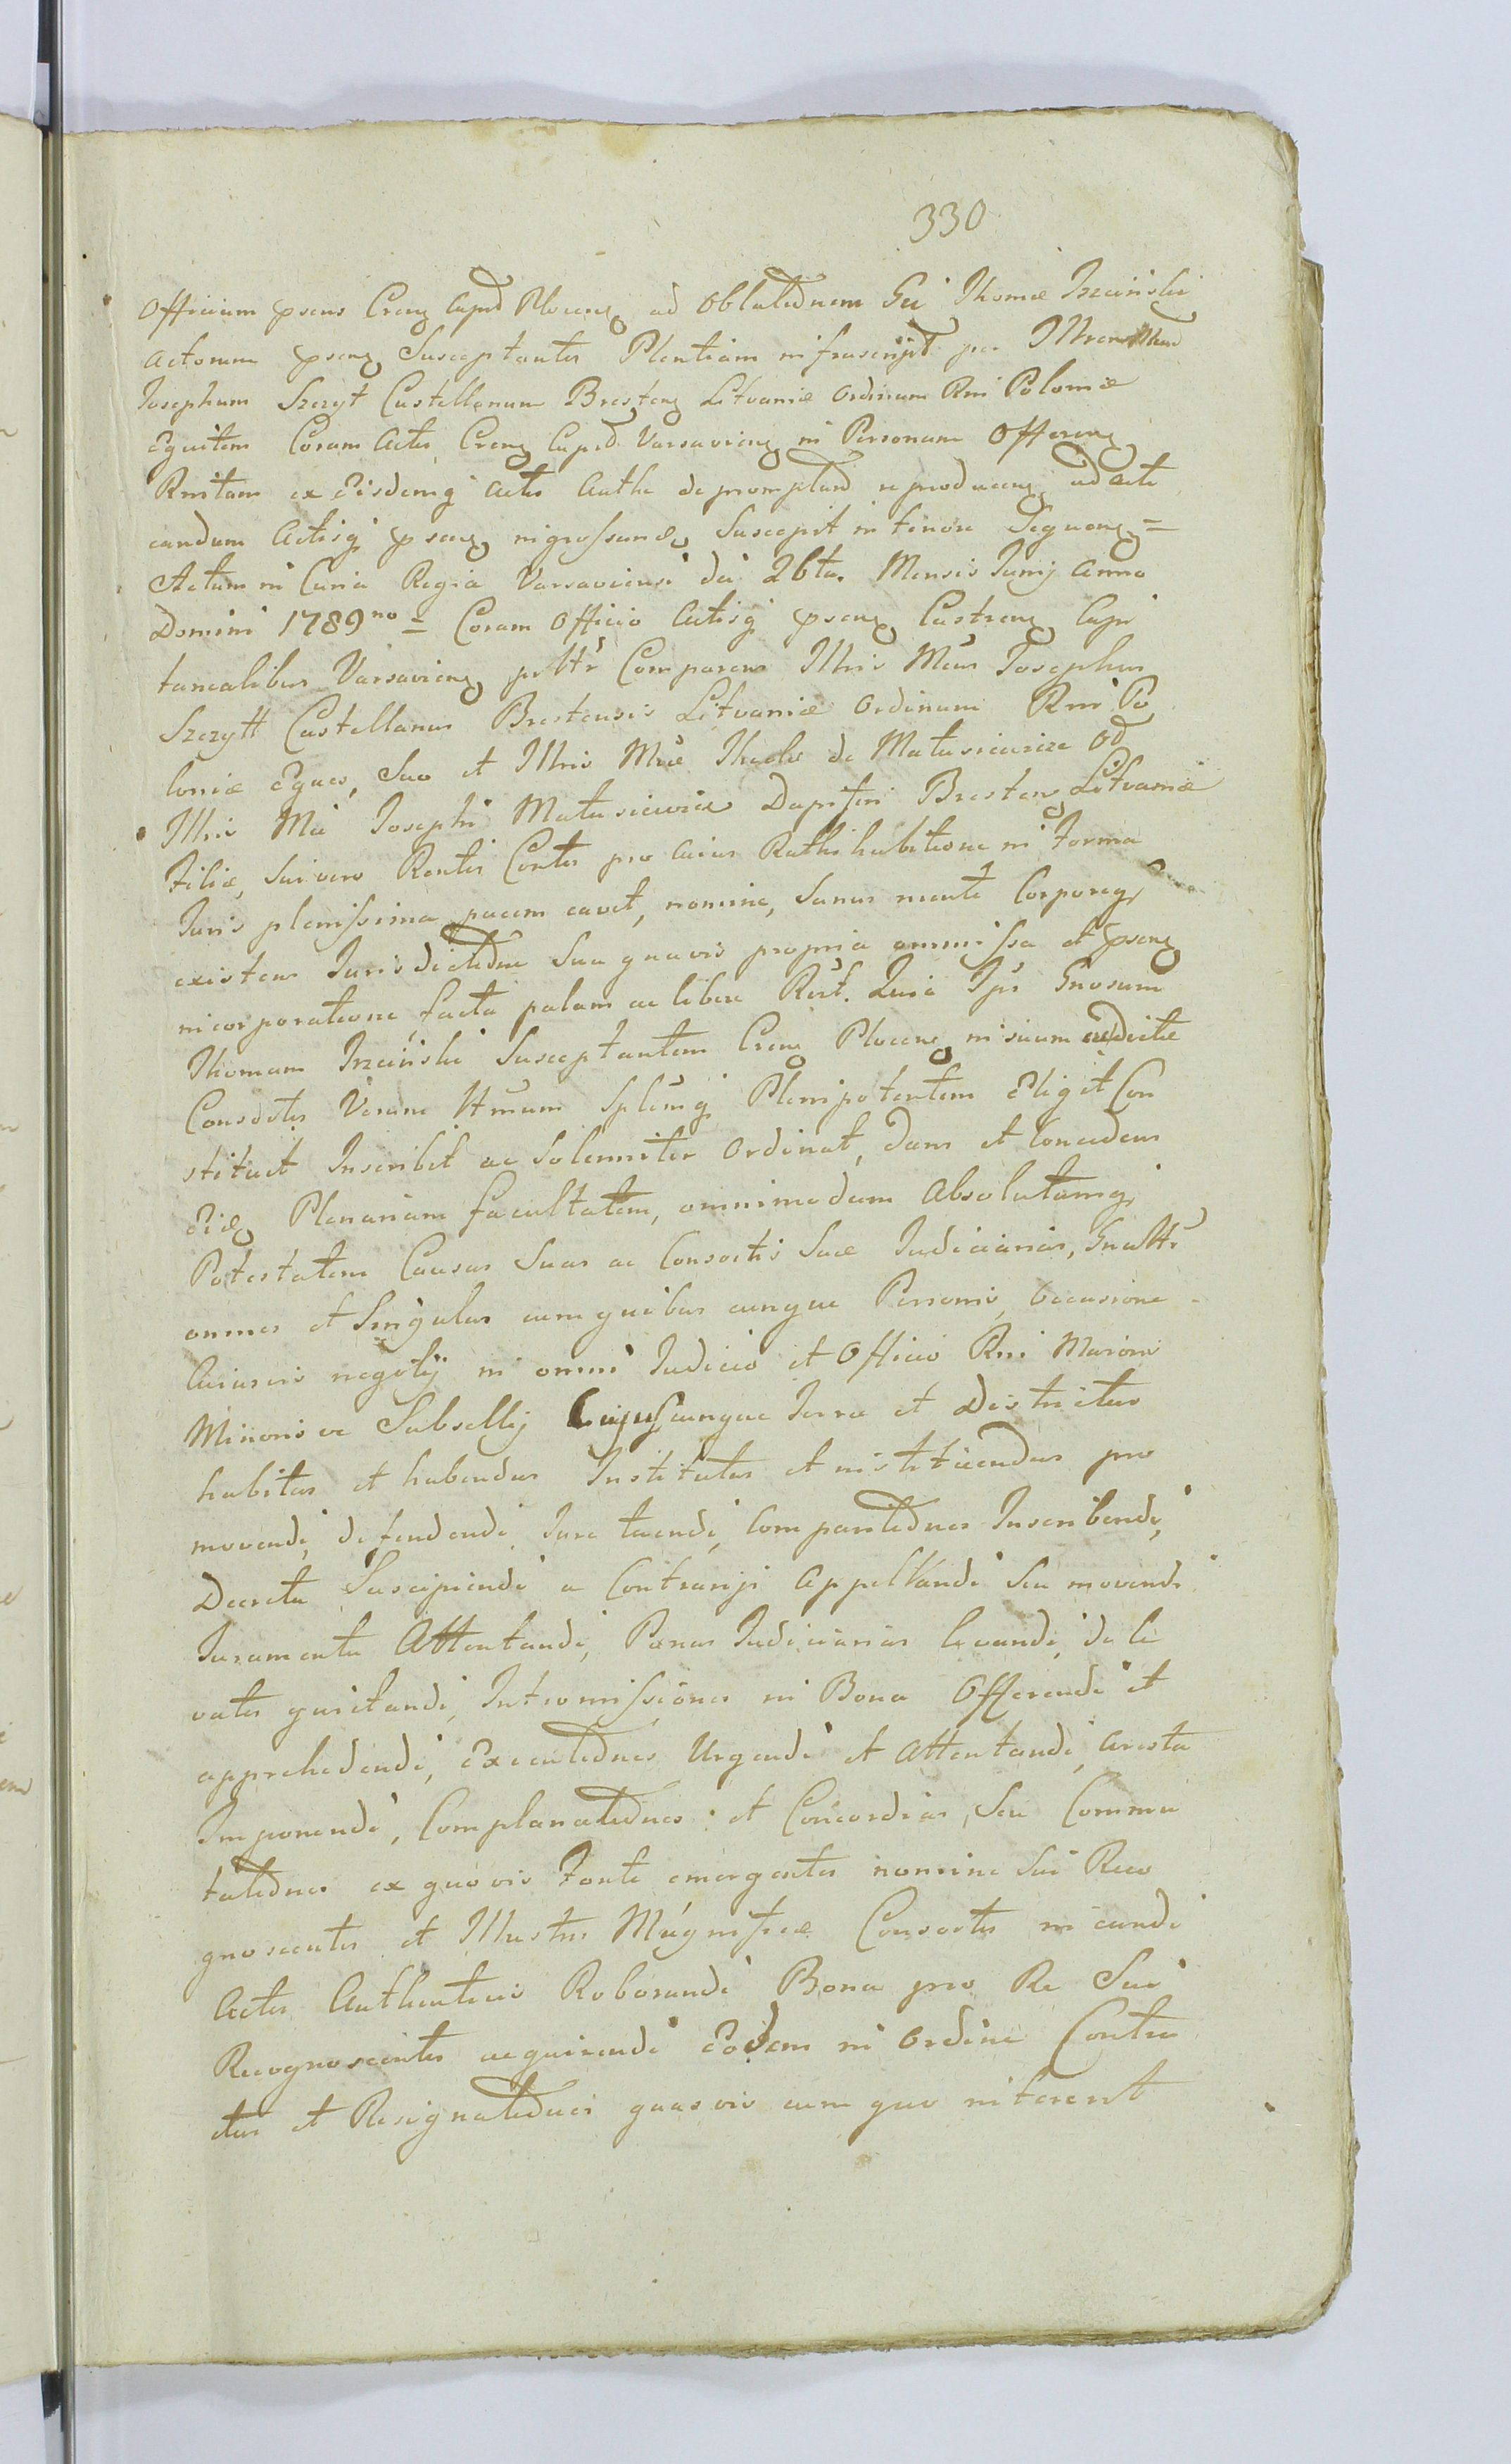 330
Officium psens Crens Capd Plocens ad Oblatednem Gsi Thomæ Trzcinski
Actorum psens Susceptantis Plentiam infrascript per Illrem Mcum
Josephum Szczyt Castellanum Brestens Litvaniæ Ordinum Rni Poloniæ
Equitem Coram Actis Crens Capd Varsaviens in Personam Offerens
Rnitam ex Eisdemq Actis Authe depromptand reproducens ad acti
candum Actisq psens ingrossand Suscepit in tenore Sequens =
Actum in Curia Regia Varsaviensi die 26ta Mensis Junij Anno
Domini 1789no = Coram Officio Actisq psens Castrens Capi
tanealibus Varsaviens psltr Comparens Illris Mcus Josephus
Szczytt Castellanus Brestensis Litvaniæ Ordinum Rni Po
loniæ Eques, Suo et Illris Mcæ Theclæ de Matusiewicze Od
Illris Mci Josephi Matusiewicz Dapiferi Brestens Litvaniæ
Filiæ, Sui vero Rentis Contis pro cuius Rathihabitione in Forma
Juris plenissima pacem cavet, nomine, Sanus mente Corporeq
existens Jurisdictedne Sua quavis propria ommissa et psens
incorporatione facta palam ac libere Rcit. Quia Ips Gnosum
Thomam Trzcinski Susceptantem Crens Plocens in suum ac dictæ
Consortis Verum Ittmum Splemq Plenipotentem Eligit Con
stituit Inscribit ac Solenniter Ordinat, dans et Concedens
Eid Plenariam facultatem, omnimodam Absolutamq
Potestatem Causas Suas ac Consortis Suæ Judiciarias, Gnaltr
omnes et Singulas cum quibus cunque Personis, Occasione
Cuiusvis negotij in omni Judicio et Officio Rni Maioris
Minoris ve Subsellij Cujuscunque Terræ et Districtus
habitas et habendas Institutas et instituendas pro
movendi, defendendi Jure tuendi, Comparitednes Inscribendi,
Decreta Suscipiendi a Contrarijs Appellandi Seu movendi
Juramenta Attentandi, Pænas Judiciarias levandi, de le
vatis quietandi, Intromissiones in Bona Offerendi et
apprehedendi, Executednes Urgendi et Attentandi, Aresta
Imponendi, Complanatednes et Concordias, Seu Commu
tatednes ex quovis Fonte emergentes nomine Sui Reco
gnoscentis et Illustris Magnificæ Consortis ineundi
Actis Authenticis Roborandi Bona pro Re Sui
Recognoscentis acquirendi Eodem in Ordine Contra
ctus et Resignatednes quasvis cum quo interent